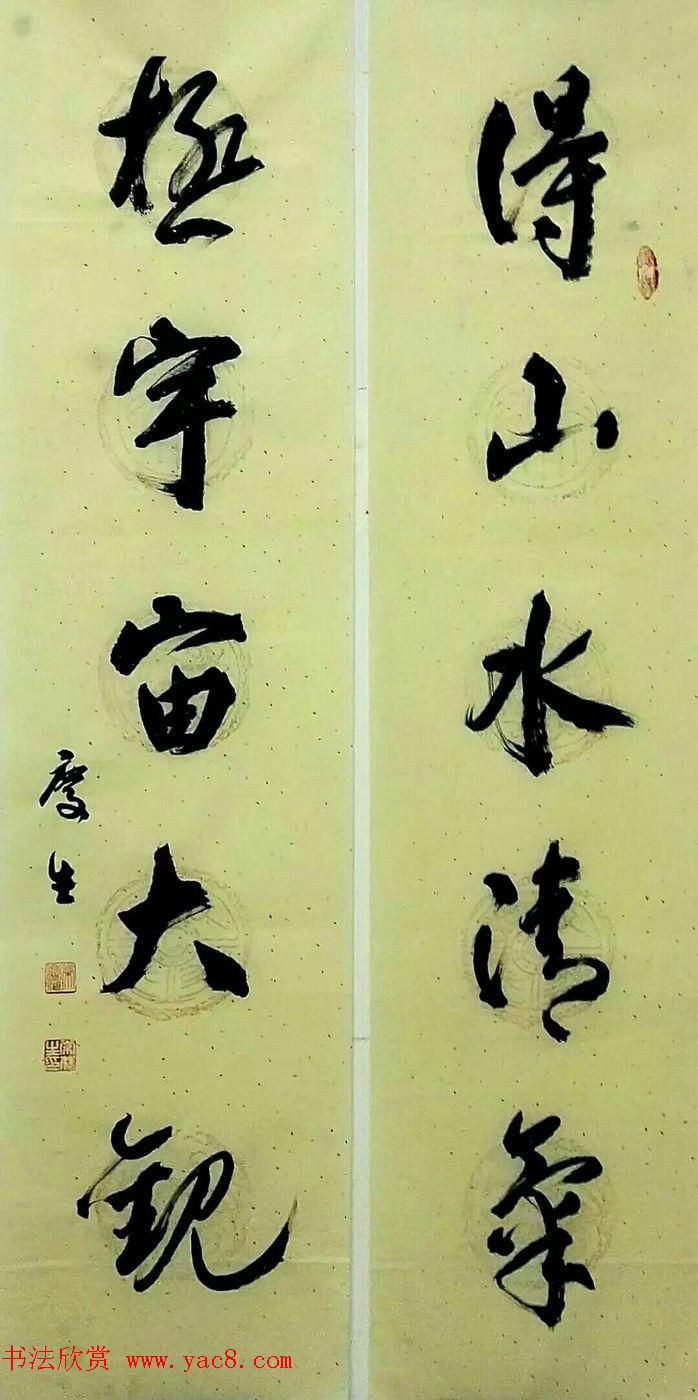 得山水清氣
極宇宙大觀
慶生
书法欣赏 www.yac8.com